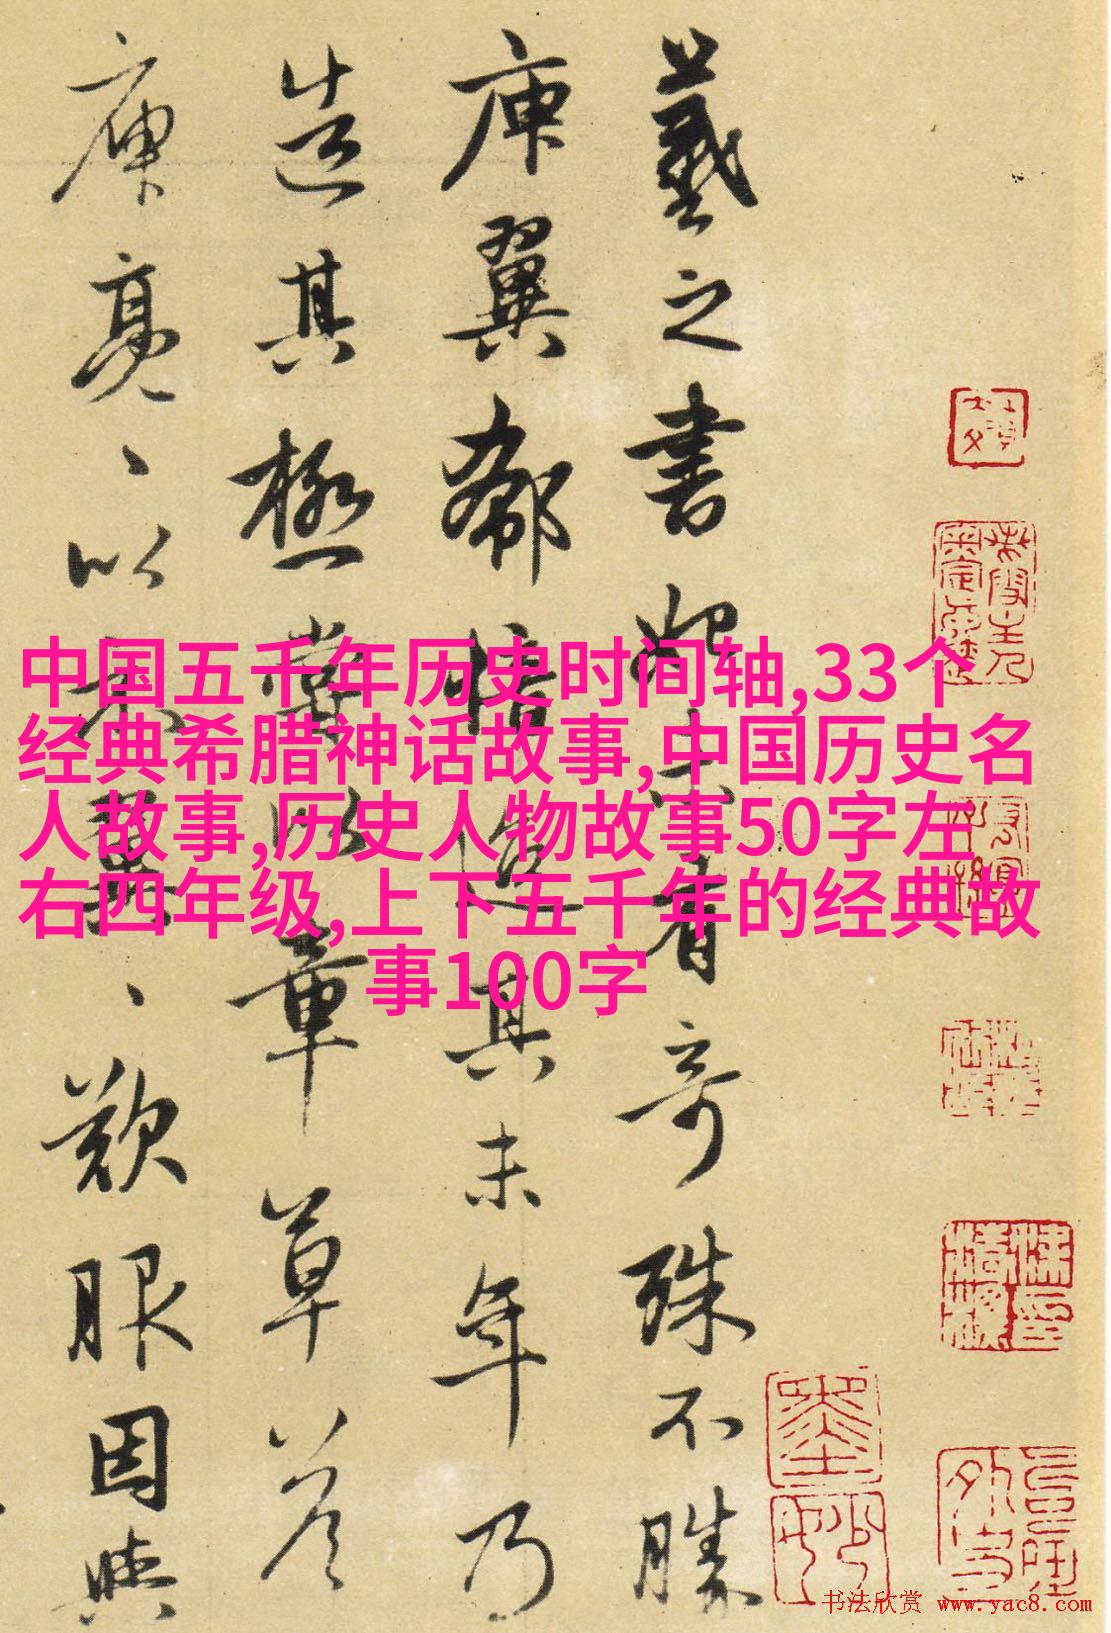 羲之書始未有奇殊不勝
庾翼郗愔迨其末年乃
造其極嘗以章草答
庾亮亮以示翼翼歎服因與
中国五千年历史时间轴,33个
经典希腊神话故事,中国历史名
人故事,历史人物故事50字左
右四年级,上下五千年的经典故
事100字
书法欣赏 www.yac8.com